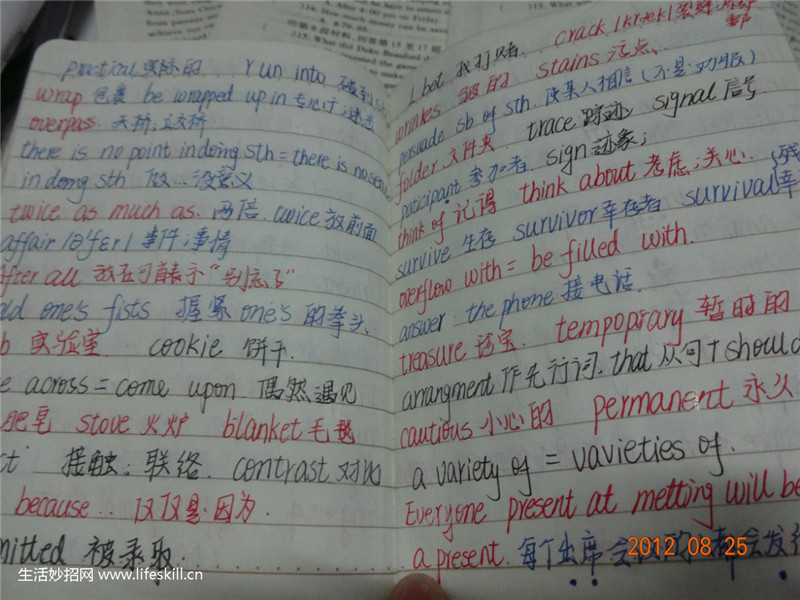 practical 实际的. run into 碰到
wrap 包裹 be wrapped up in 专心于; 迷恋
overpass. 天桥; 立交桥
there is no point in doing sth = there is no sense
in doing sth 做…没意义
twice as much as. 两倍. twice 放前面
affair /ə'fer/ 事件; 事情
After all 放在句首表示“别忘了”
old one's fists 握紧 one's 的拳头
b 实验室 cookie 饼干.
e across = come upon 偶然遇见
肥皂 stove 火炉 blanket 毛毯
ct 接触; 联络. contrast 对比
because... 仅仅是因为.
mitted 被录取.
I bet 我打赌. crack /kræk/ 裂缝;
wrinkles 皱的 stains 污点、
persuade sb of sth. 使某人相信 (不是劝服)
folder 文件夹. trace 踪迹; signal 信号
paticipant 参加者 sign 迹象;
think of 记得 think about 考虑; 关心.
survive 生存 survivor 幸存者 survival 幸
overflow with = be filled with.
answer the phone 接电话.
treasure 珍宝. tempoprary 暂时的
arrangment 作先行词. that 从句 + should
cautious 小心的 permanent 永久
a variety of = vavieties of.
Everyone present at metting will be
a present. 每个出席会议的都会发
2012 08 25
生活妙招网 www.lifeskill.cn